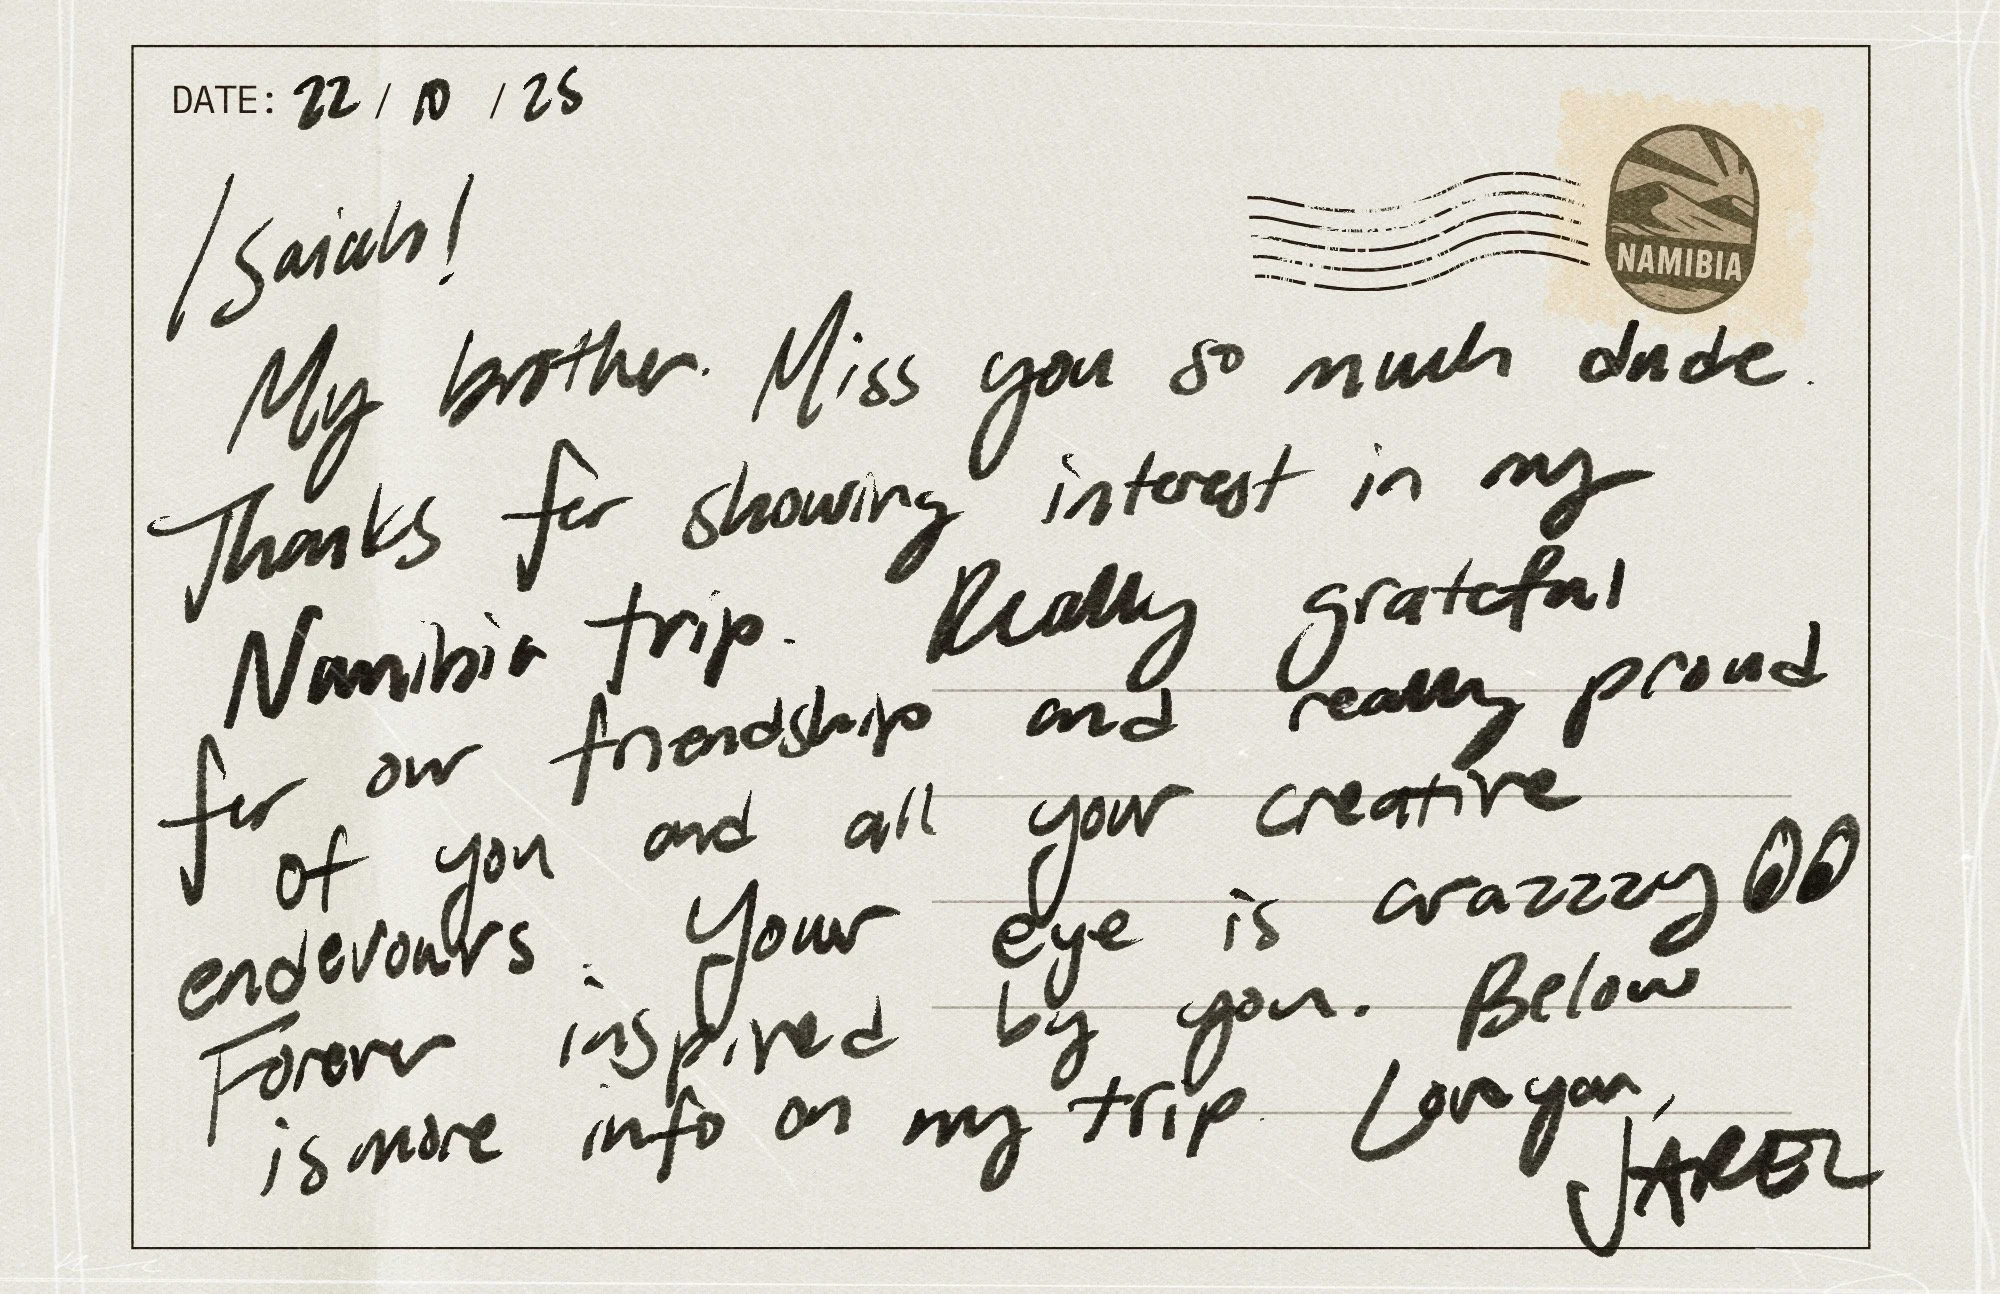 DATE: 22 / 10 / 25
NAMIBIA
Isaiah!
My brother. Miss you so much dude.
Thanks for showing interest in my
Namibia trip. Really grateful
for our friendship and really proud
of you and all your creative
endevours. Your eye is crazzzy
Forever inspired by you. Below
is more info on my trip. Love you,
JAREL